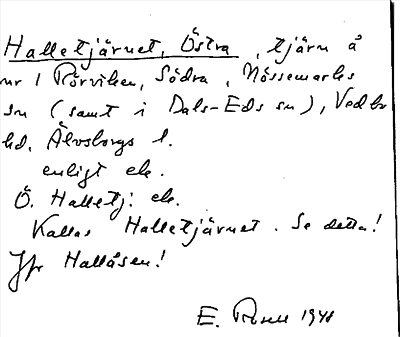 Halletjärnet, Östra, tjärn å
nr 1 Rörviken, Södra, Nössemarks
sn (samt i Dals-Eds sn), Vedbo
hd, Älvsborgs l.
enligt ek.
Ö. Halletj: ek.
Kallas Halletjärnet. Se detta!
Jfr Hallåsen!
E. 1941